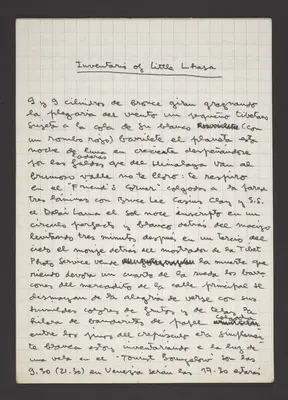 Inventario of Little Lhasa
9 y 9 cilindros de bronce giran graznando
la plegaria del viento un pequeño tibetano
sujeta a la cola de su blanco (con
un rombo rojo) barrilete el planeta esta
noche de luna en creciente despeñándose
por las laderas que del Himalaya van al
brumoso valle no te lloro: te respiro
en el "Friend's Corner" colgados a la pared
tres láminas con Bruce Lee Cassius Clay y S.S.
el Dalai Lama el sol nace inscripto en un
círculo perfecto y blanco detrás del macizo
tres minutos después en un tercio del
cielo el monje detrás del mostrador de la Tibet
Photo Service vende la muerte que
riendo devora un cuarto de la rueda los
del mercadito de la calle principal se
desmayan de la alegría de verse con sus
humildes colores de frutos y de telas la
hilera de banderitas de papel colgada
entre los pinos del crepúsculo era simplemen
te blanca estoy inventariando a la luz de
una vela en el "Tourist Bungalow" son las
9.30 (21.30) en Venezia serán las 17.30 estarás